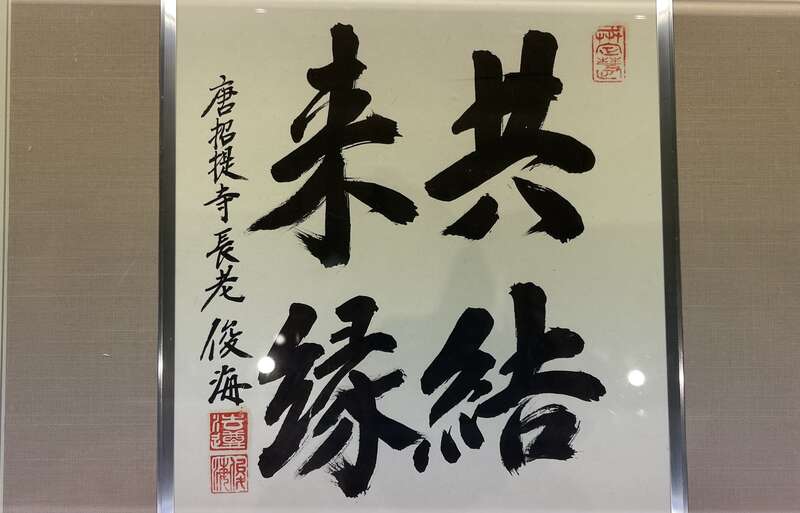 共結
来縁
唐招提寺長老 俊海